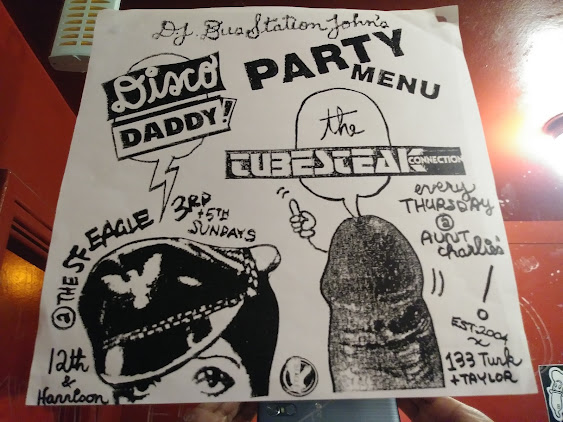 D.J. Bus Station John's
PARTY
MENU
Disco
DADDY!
the
TUBESTEAK
CONNECTION
3RD
+5TH
SUNDAYS
@ THE SF EAGLE
12th
&
Harrison
every
THURSDAY
@
AUNT
Charlies'
EST. 2004
133 Turk
+TAYLOR